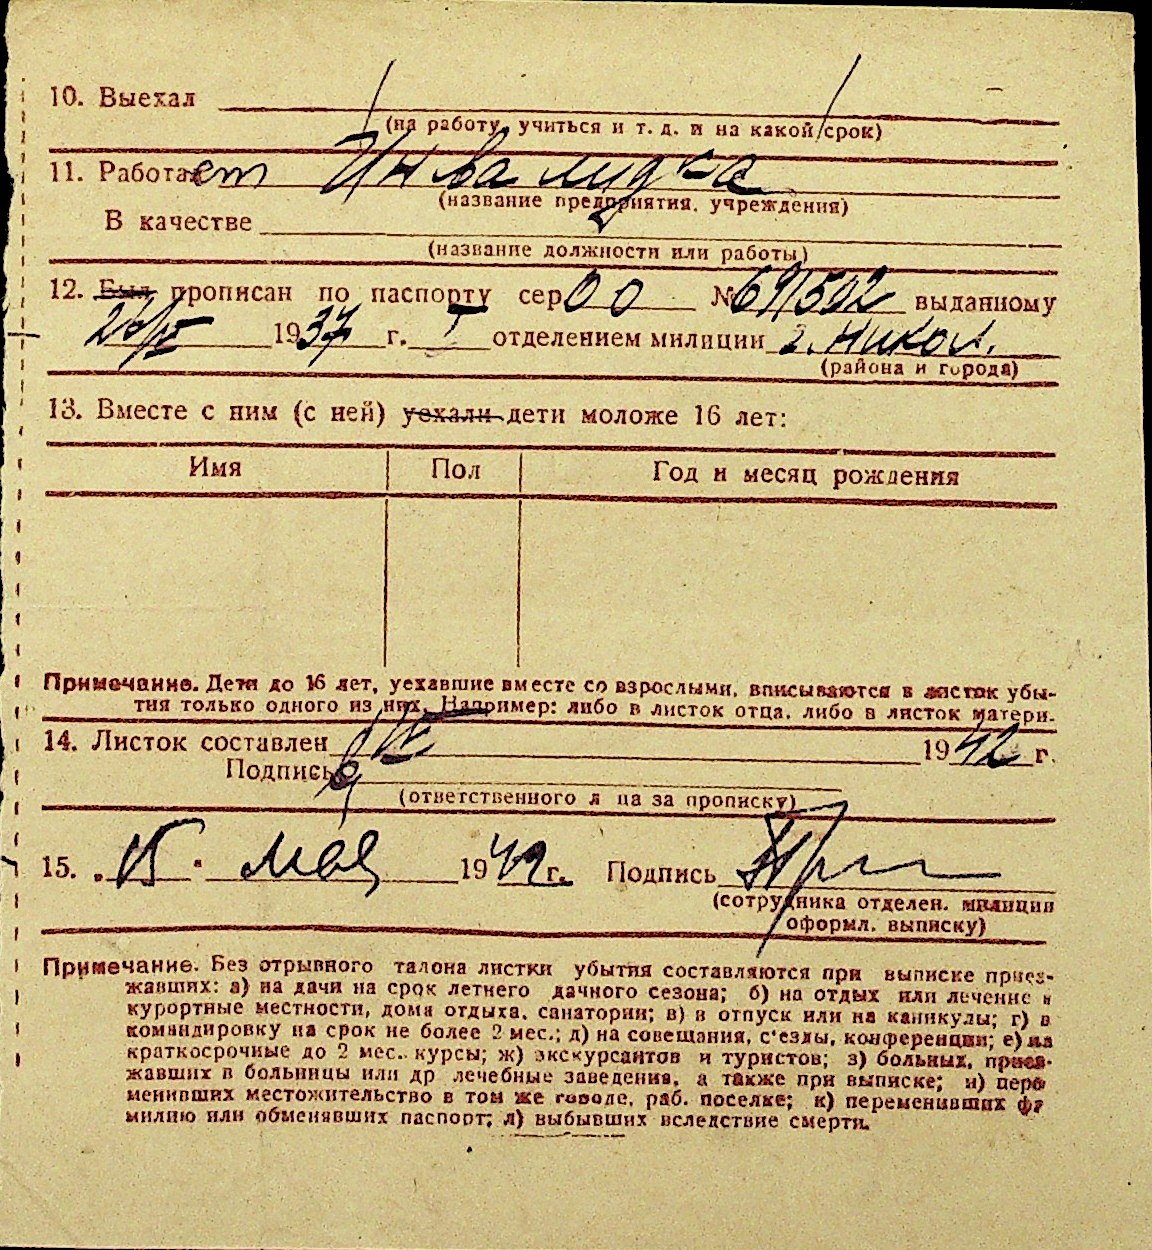 10. Выехал
(на работу, учиться и т. д. и на какой срок)
11. Работает Инвалидка
(название предприятия, учреждения)
В качестве
(название должности или работы)
12. Был прописан по паспорту сер 00 № 691502 выданному
1937 г. I отделением милиции г. Никол.
(района и города)
13. Вместе с ним (с ней) уехали дети моложе 16 лет:
Имя Пол Год и месяц рождения
Примечание. Дети до 16 лет, уехавшие вместе со взрослыми, вписываются в листок убы-
тия только одного из них. Например: либо в листок отца, либо в листок матери.
14. Листок составлен 1942 г.
Подпись
(ответственного л ца за прописку)
15. „15" мая 1942 г. Подпись
(сотрудника отделен. милиции
оформл. выписку)
Примечание. Без отрывного талона листки убытия составляются при выписке приез-
жавших: а) на дачи на срок летнего дачного сезона; б) на отдых или лечение в
курортные местности, дома отдыха, санатории; в) в отпуск или на каникулы; г) в
командировку на срок не более 2 мес.; д) на совещания, с'езды, конференции; е) на
краткосрочные до 2 мес. курсы; ж) экскурсантов и туристов; з) больных, приез-
жавших в больницы или др лечебные заведения, а также при выписке; и) пере
менивших местожительство в том же городе, раб. поселке; к) переменивших фа
милию или обменявших паспорт; л) выбывших вследствие смерти.